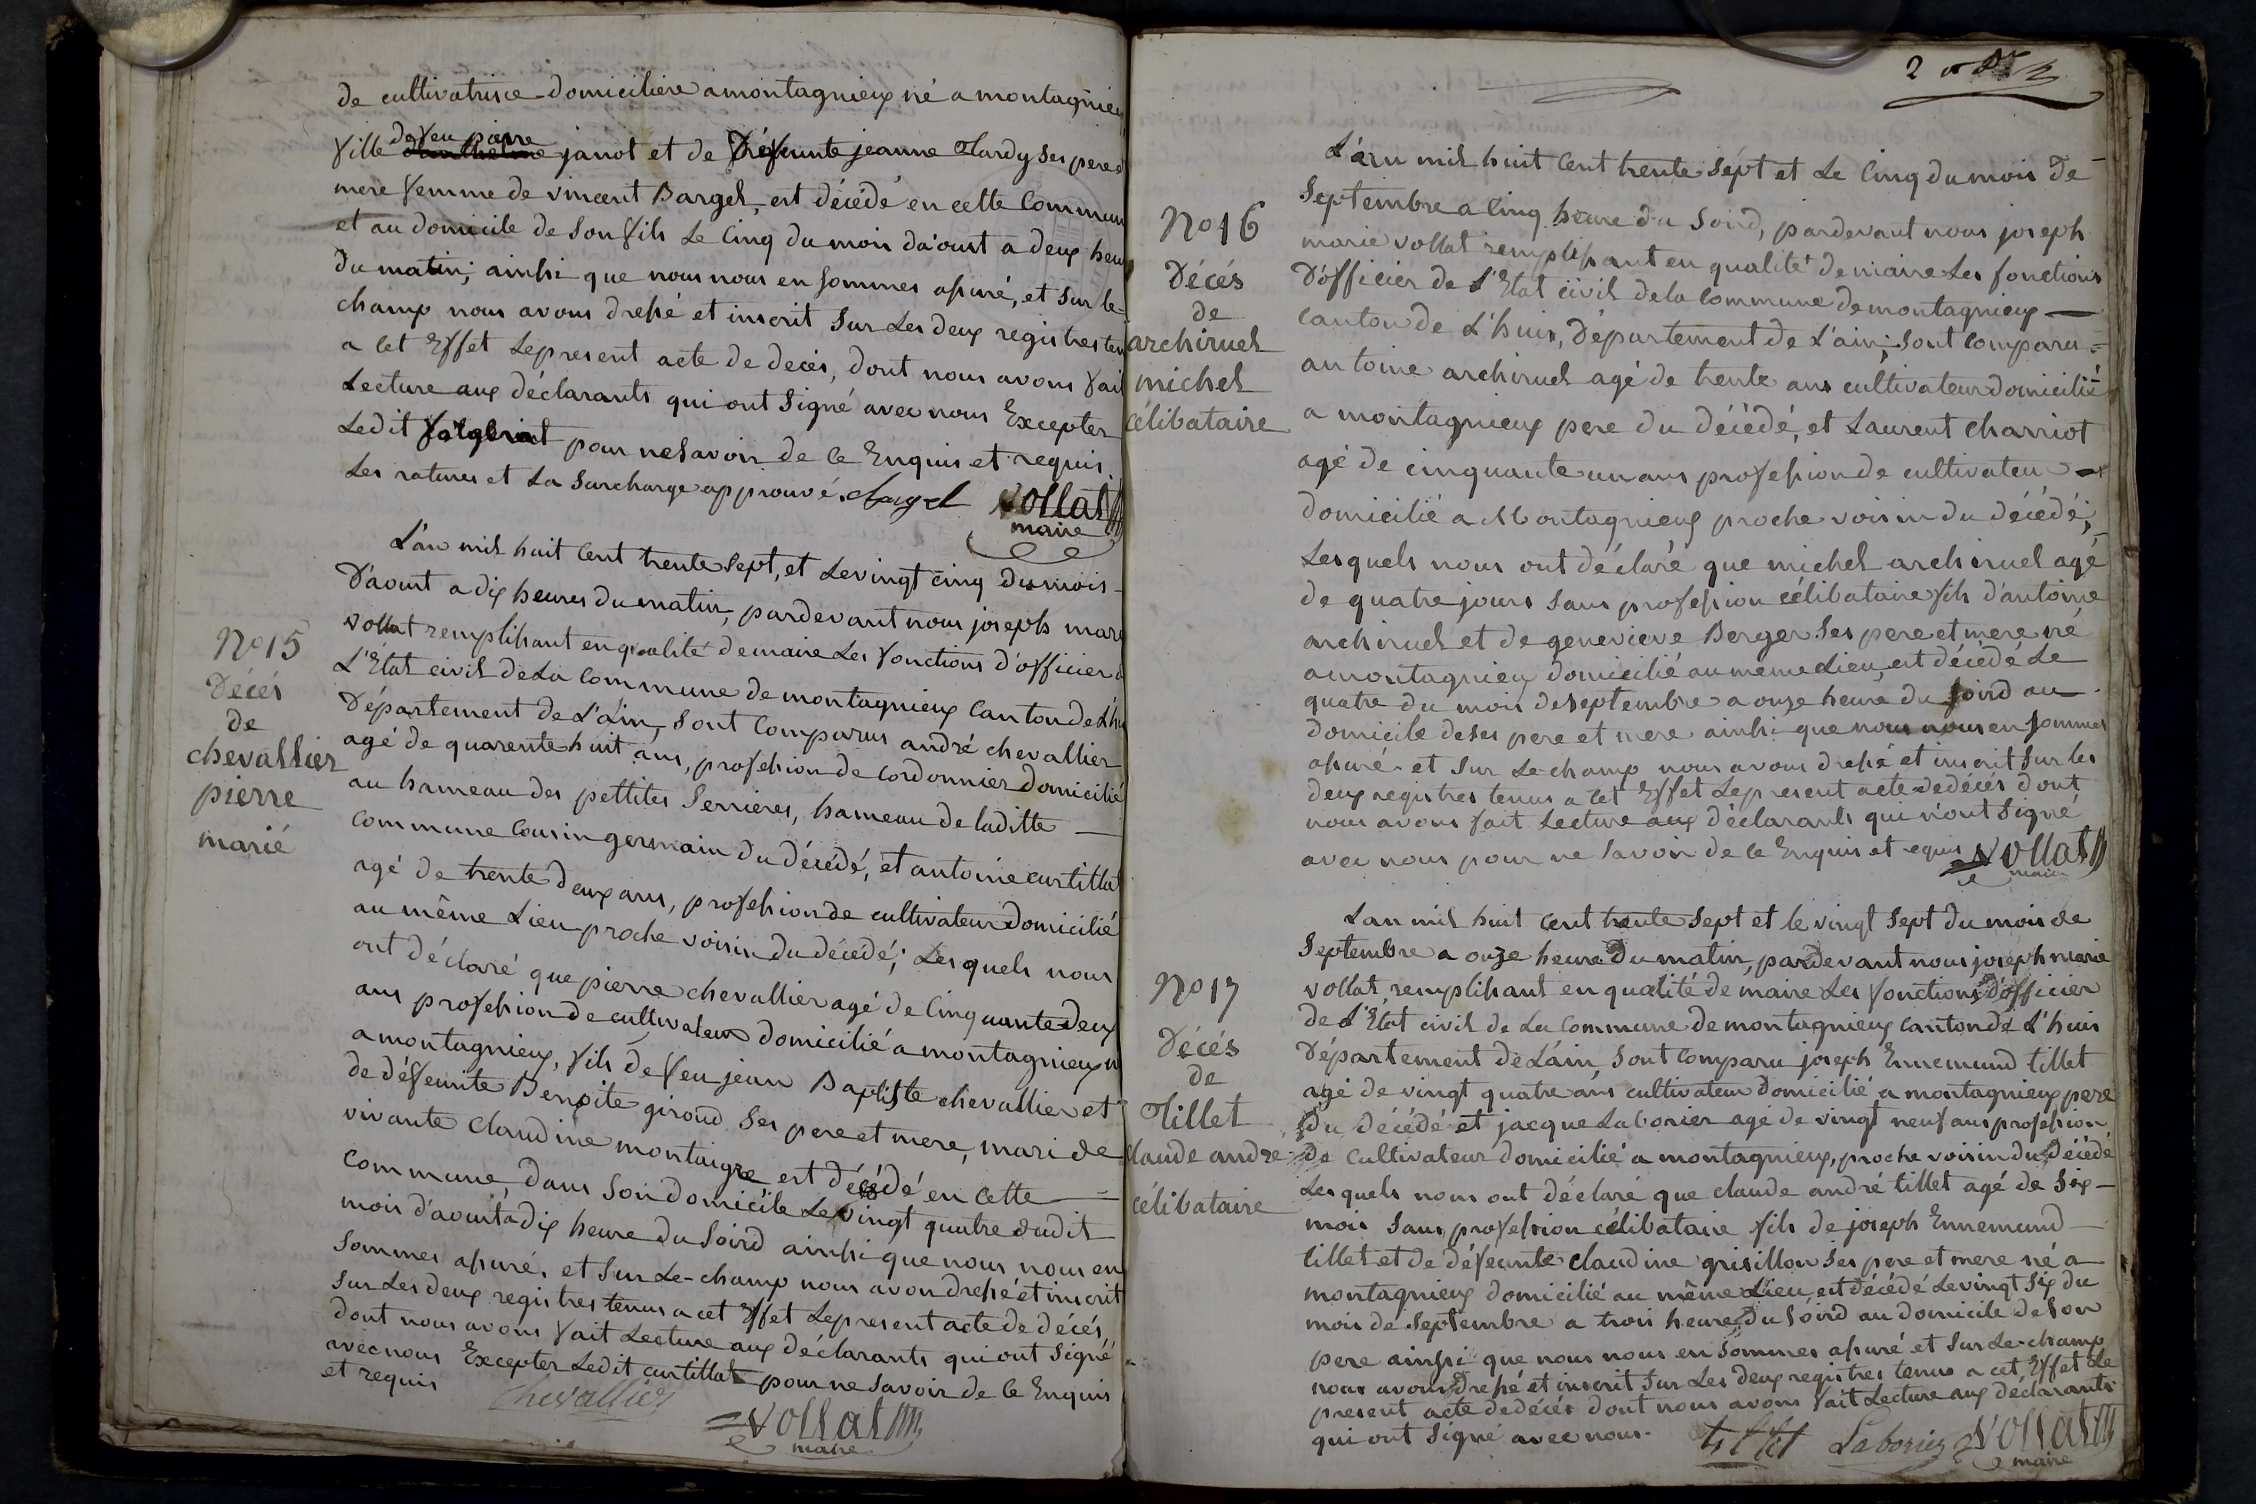 de cultivatrice domiciliere a montagnieux né a montagnieu
fille de feu pierre janot et de Défeunte jeanne Tardy ses pere
mere femme de vincent Bargel, est décédé en cette Commun
et au domicile de Son fils Le Cinq du mois da'oust a deux heu
du matin; ainssi que nous nous en Sommes assuré, et Sur le-
champ nous avons dressé et inscrit Sur Les deux registres ten
a Cet Effet Lepresent acte de decès, dont nous avons fait
Lecture aux déclarants qui ont Signé avec nous Excepter
Ledit pour ne Savoir de Ce Enquis et requis.
Les ratures et La Surcharge approuvé. Bargel Vollat
maire
L'an mil huit Cent trente Sept, et Levingt Cinq du mois
D'aoust a dix heures du matin, pardevant nous joseph mari
vollat remplissant en qualité de maire Les fonctions d'officier d
L'État civil de La Commune de montagnieux Canton de L'hu
Département de L'ain, Sont Comparus andré chevallier
agé de quarente huit ans, profession de Cordonnier domicilié
au hameau des pettites Serrieres, hameau de laditte
Commune Cousin germain du décédé, et antoine curtillat
agé de trente deux ans, profession de cultivateur domicilié
au même Lieu proche voisin du décédé; Les quels nous
ont déclaré que pierre chevallier agé de Cinquante deux
ans profession de cultivateur domicilié a montagnieux n
a montagnieux, fils de feu jean Baptiste chevallier et
de défeunte Benoite giroud Ses pere et mere, mari de
vivante Claudine montaigre est décédé en Cette
Commune, dans Son domicile Le vingt quatre dudit
mois d'aoust a dix heure du Soird ainssi que nous nous en
Sommes assuré, et Sur Le-champ nous avon dressé et inscrit
Sur Les deux registres tenus a cet Effet Lepresent acte de décés,
dont nous avons fait Lecture aux déclarants qui ont Signé
avec nous Excepter Ledit curtillat pour ne Savoir de Ce Enquis
et requis Chevallier
Vollat
maire
No 15
Décés
de
chevallier
pierre
marié
2
L'an mil huit Cent trente Sept et Le Cinq du mois de
Septembre a Cinq heure du Soird, pardevant nous joseph
marie vollat remplissant en qualité de maire Les fonctions
D'officier de L'Etat civil de la Commune de montagnieux
Canton de L'huis, Département de L'ain; Sont Comparu
antoine archiruel agé de trente ans cultivateur domicilié
a montagnieux pere du décédé, et Laurent charriot
agé de cinquante un ans profession de cultivateur
domicilié a Montagnieux proche voisin du décédé;
Lesquels nous ont déclaré que michel archiruel agé
de quatre jours Sans profession célibataire fils d'antoine
archiruel et de genevieve Berger Ses pere et mere né
a montagnieux domicilié au meme Lieu, est décédé Le
quatre du mois de Septembre a onze heure du Soird au
domicile de ses pere et mere ainssi que nous nous en Sommes
assuré et Sur Le champ nous avons dressé et inscrit Sur les
deux registres tenus a cet Effet Lepresent acte de décés dont
nous avons fait Lecture aux déclarants qui n'ont Signé
avec nous pour ne Savoir de Ce Enquis et requis Vollat
maire
No 16
Décés
de
archiruel
michel
célibataire
Lan mil huit Cent trente Sept et le vingt Sept du mois de
Septembre a onze heure Du matin, pardevant nous joseph marie
vollat, remplissant en qualité de maire Les fonctions D'officier
de L'Etat civil de La Commune de montagnieux canton de L'huis
Département de L'ain, Sont Comparu joseph Ennemund tillet
agé de vingt quatre ans cultivateur domicilié a montagnieux pere
Du décédé et jacque Laborier agé de vingt neuf ans profession
De Cultivateur domicilié a montagnieux, proche voisin du Décédé
Les quels nous ont déclaré que claude andré tillet agé de Six
mois Sans profession célibataire fils de joseph Ennemund
tillet et de défeunte claudine grisillon Ses pere et mere né a
montagnieux domicilié au même Lieu, est décédé Le vingt Six du
mois de Septembre a trois heure Du Soird au domicile de Son
pere ainssi que nous nous en Sommes assuré et Sur Le-champ
nous avons Dressé et inscrit Sur Les deux registres tenus a cet Effet Le
present acte de décés dont nous avons fait Lecture aux déclarants
qui ont Signé avec nous. tillet Laborier Vollat
maire
No 17
Décés
de
Tillet
claude andre
célibataire